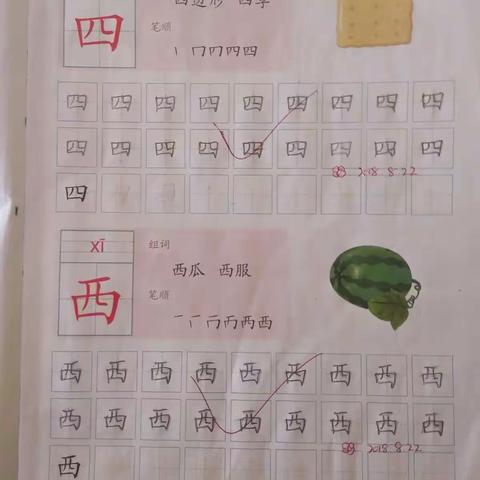 四边形 四季
四
笔顺
四 四 四 四 四 四 四 四 四
四 四 四 四 四 四 四 四 四
2018.8.22
四
xī
组词
西
西瓜 西服
笔顺
西 西 西 西 西 西 西 西 西
西 西 西 西 西 西 西 西 西
2018.8.22
西